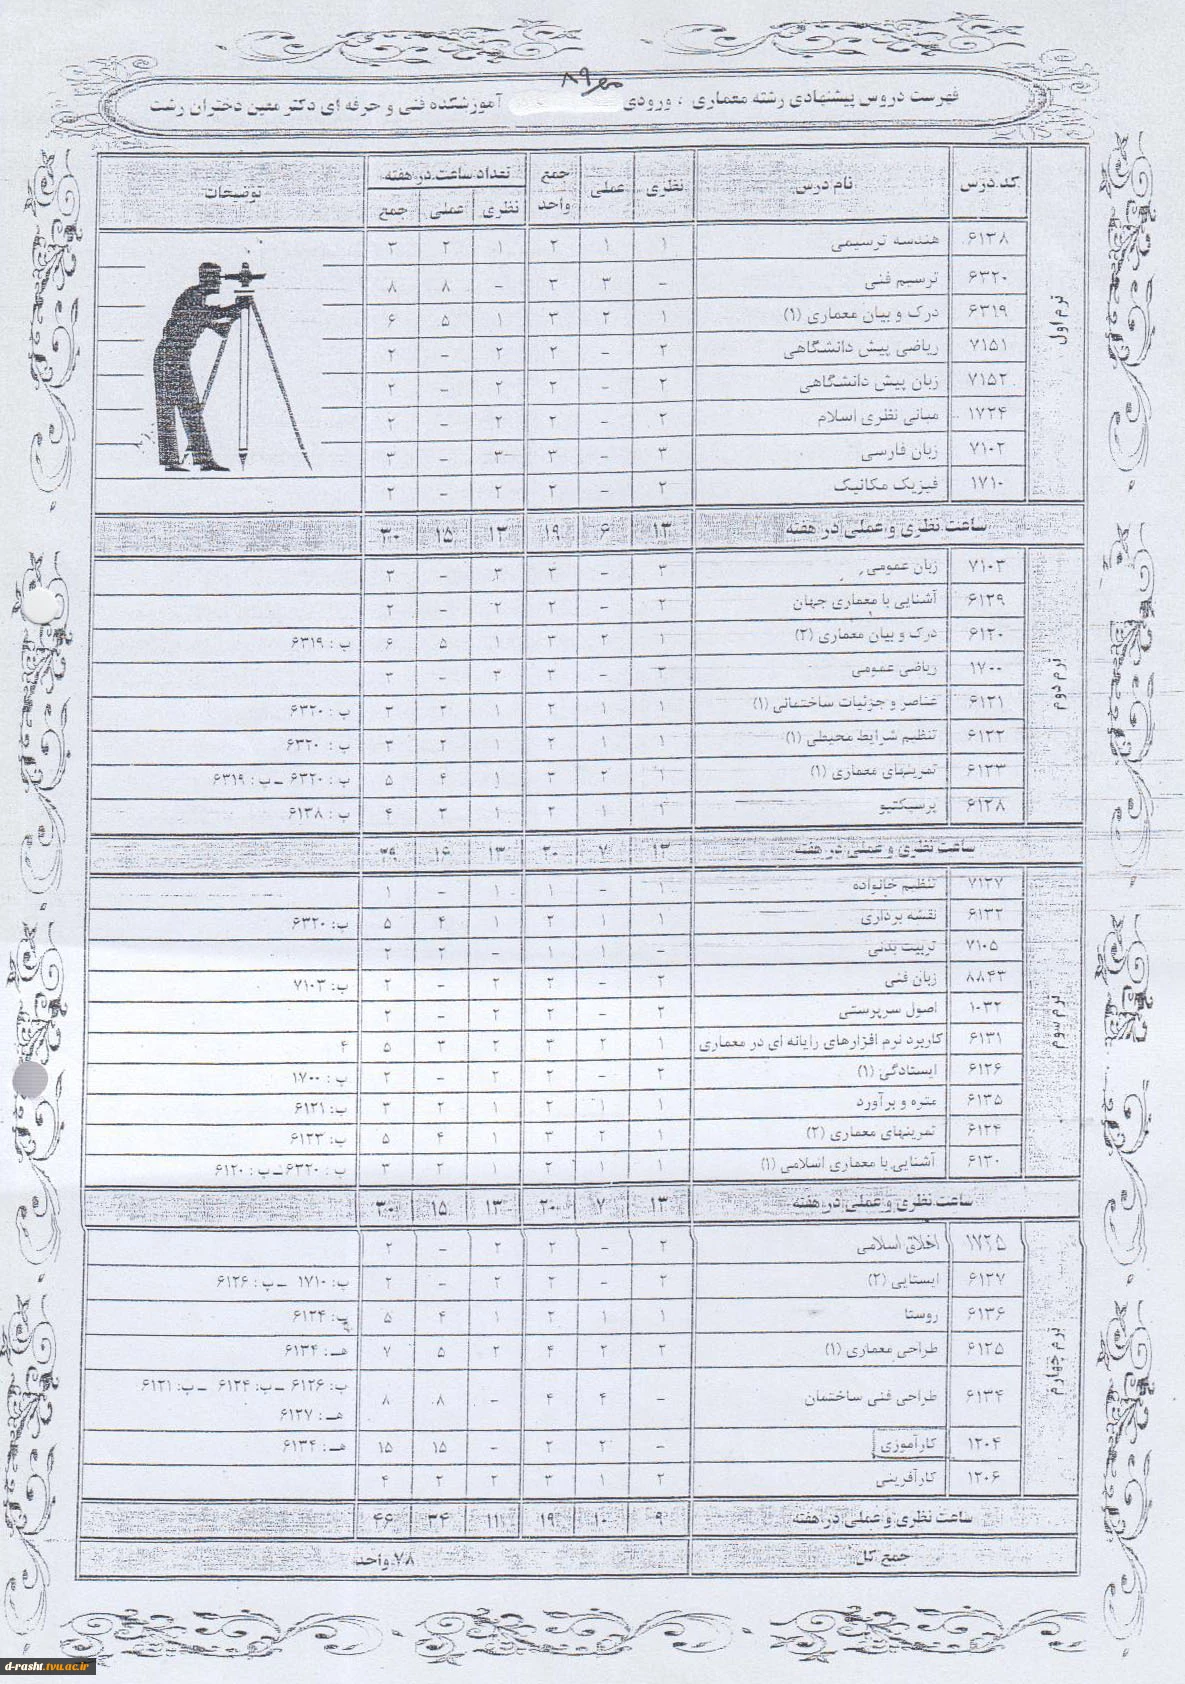 مهر ۸۹
فهرست دروس پیشنهادی رشته معماری ، ورودی آموزشکده فنی و حرفه ای دکتر معین دختران رشت
کد درس نام درس نظری عملی جمع واحد تعداد ساعت در هفته توضیحات
نظری عملی جمع
ترم اول
۶۱۳۸ هندسه ترسیمی ۱ ۱ ۲ ۱ ۲ ۳
۶۳۲۰ ترسیم فنی - ۳ ۳ - ۸ ۸
۶۳۱۹ درک و بیان معماری (۱) ۱ ۲ ۳ ۱ ۵ ۶
۷۱۵۱ ریاضی پیش دانشگاهی ۲ - ۲ ۲ - ۲
۷۱۵۲ زبان پیش دانشگاهی ۲ - ۲ ۲ - ۲
۱۷۲۴ مبانی نظری اسلام ۲ - ۲ ۲ - ۲
۷۱۰۲ زبان فارسی ۳ - ۳ ۳ - ۳
۱۷۱۰ فیزیک مکانیک ۲ - ۲ ۲ - ۲
ساعت نظری و عملی در هفته ۱۳ ۶ ۱۹ ۱۳ ۱۵ ۳۰
ترم دوم
۷۱۰۳ زبان عمومی ۳ - ۳ ۳ - ۳
۶۱۲۹ آشنایی با معماری جهان ۲ - ۲ ۲ - ۲
۶۱۲۰ درک و بیان معماری (۲) ۱ ۲ ۳ ۱ ۵ ۶ ب : ۶۳۱۹
۱۷۰۰ ریاضی عمومی ۳ - ۳ ۳ - ۳
۶۱۲۱ عناصر و جزئیات ساختمانی (۱) ۱ ۱ ۲ ۱ ۲ ۳ ب : ۶۳۲۰
۶۱۲۲ تنظیم شرایط محیطی (۱) ۱ ۱ ۲ ۱ ۲ ۳ ب : ۶۳۲۰
۶۱۲۳ تمرینهای معماری (۱) ۱ ۲ ۳ ۱ ۴ ۵ ب : ۶۳۲۰ ـ ب : ۶۳۱۹
۶۱۲۸ پرسپکتیو ۱ ۱ ۲ ۱ ۳ ۴ ب : ۶۱۳۸
ساعت نظری و عملی در هفته ۱۳ ۷ ۲۰ ۱۳ ۱۶ ۲۹
ترم سوم
۷۱۲۷ تنظیم خانواده ۱ - ۱ ۱ - ۱
۶۱۳۲ نقشه برداری ۱ ۱ ۲ ۱ ۴ ۵ ب: ۶۳۲۰
۷۱۰۵ تربیت بدنی - ۱ ۱ - ۲ ۲
۸۸۴۳ زبان فنی ۲ - ۲ ۲ - ۲ ب: ۷۱۰۳
۱۰۳۲ اصول سرپرستی ۲ - ۲ ۲ - ۲
۶۱۳۱ کاربرد نرم افزارهای رایانه ای در معماری ۱ ۲ ۳ ۲ ۳ ۵ ۴
۶۱۲۶ ایستادگی (۱) ۲ - ۲ ۲ - ۲ ب : ۱۷۰۰
۶۱۳۵ متره و برآورد ۱ ۱ ۲ ۱ ۲ ۳ ب: ۶۱۲۱
۶۱۲۴ تمرینهای معماری (۲) ۱ ۲ ۳ ۱ ۴ ۵ ب: ۶۱۲۳
۶۱۳۰ آشنایی با معماری اسلامی (۱) ۱ ۱ ۲ ۱ ۲ ۳ ب : ۶۳۲۰ ـ ب : ۶۱۲۰
ساعت نظری و عملی در هفته ۱۳ ۷ ۲۰ ۱۳ ۱۵ ۳۰
ترم چهارم
۱۷۲۵ اخلاق اسلامی ۲ - ۲ ۲ - ۲
۶۱۲۷ ایستایی (۲) ۲ - ۲ ۲ - ۲ ب: ۱۷۱۰ ـ پ : ۶۱۲۶
۶۱۳۶ روستا ۱ ۱ ۲ ۱ ۴ ۵ پ: ۶۱۲۴
۶۱۲۵ طراحی معماری (۱) ۲ ۲ ۴ ۲ ۵ ۷ هـ : ۶۱۳۴
۶۱۳۴ طراحی فنی ساختمان - ۴ ۴ - ۸ ۸ ب: ۶۱۲۶ ـ ب: ۶۱۲۴ ـ ب: ۶۱۲۱
هـ : ۶۱۲۷
۱۲۰۴ کارآموزی - ۲ ۲ - ۱۵ ۱۵ هـ : ۶۱۳۴
۱۲۰۶ کارآفرینی ۲ ۱ ۳ ۲ ۲ ۴
ساعت نظری و عملی در هفته ۹ ۱۰ ۱۹ ۱۱ ۳۴ ۴۶
جمع کل ۷۸ واحد
d-rasht.tvu.ac.ir